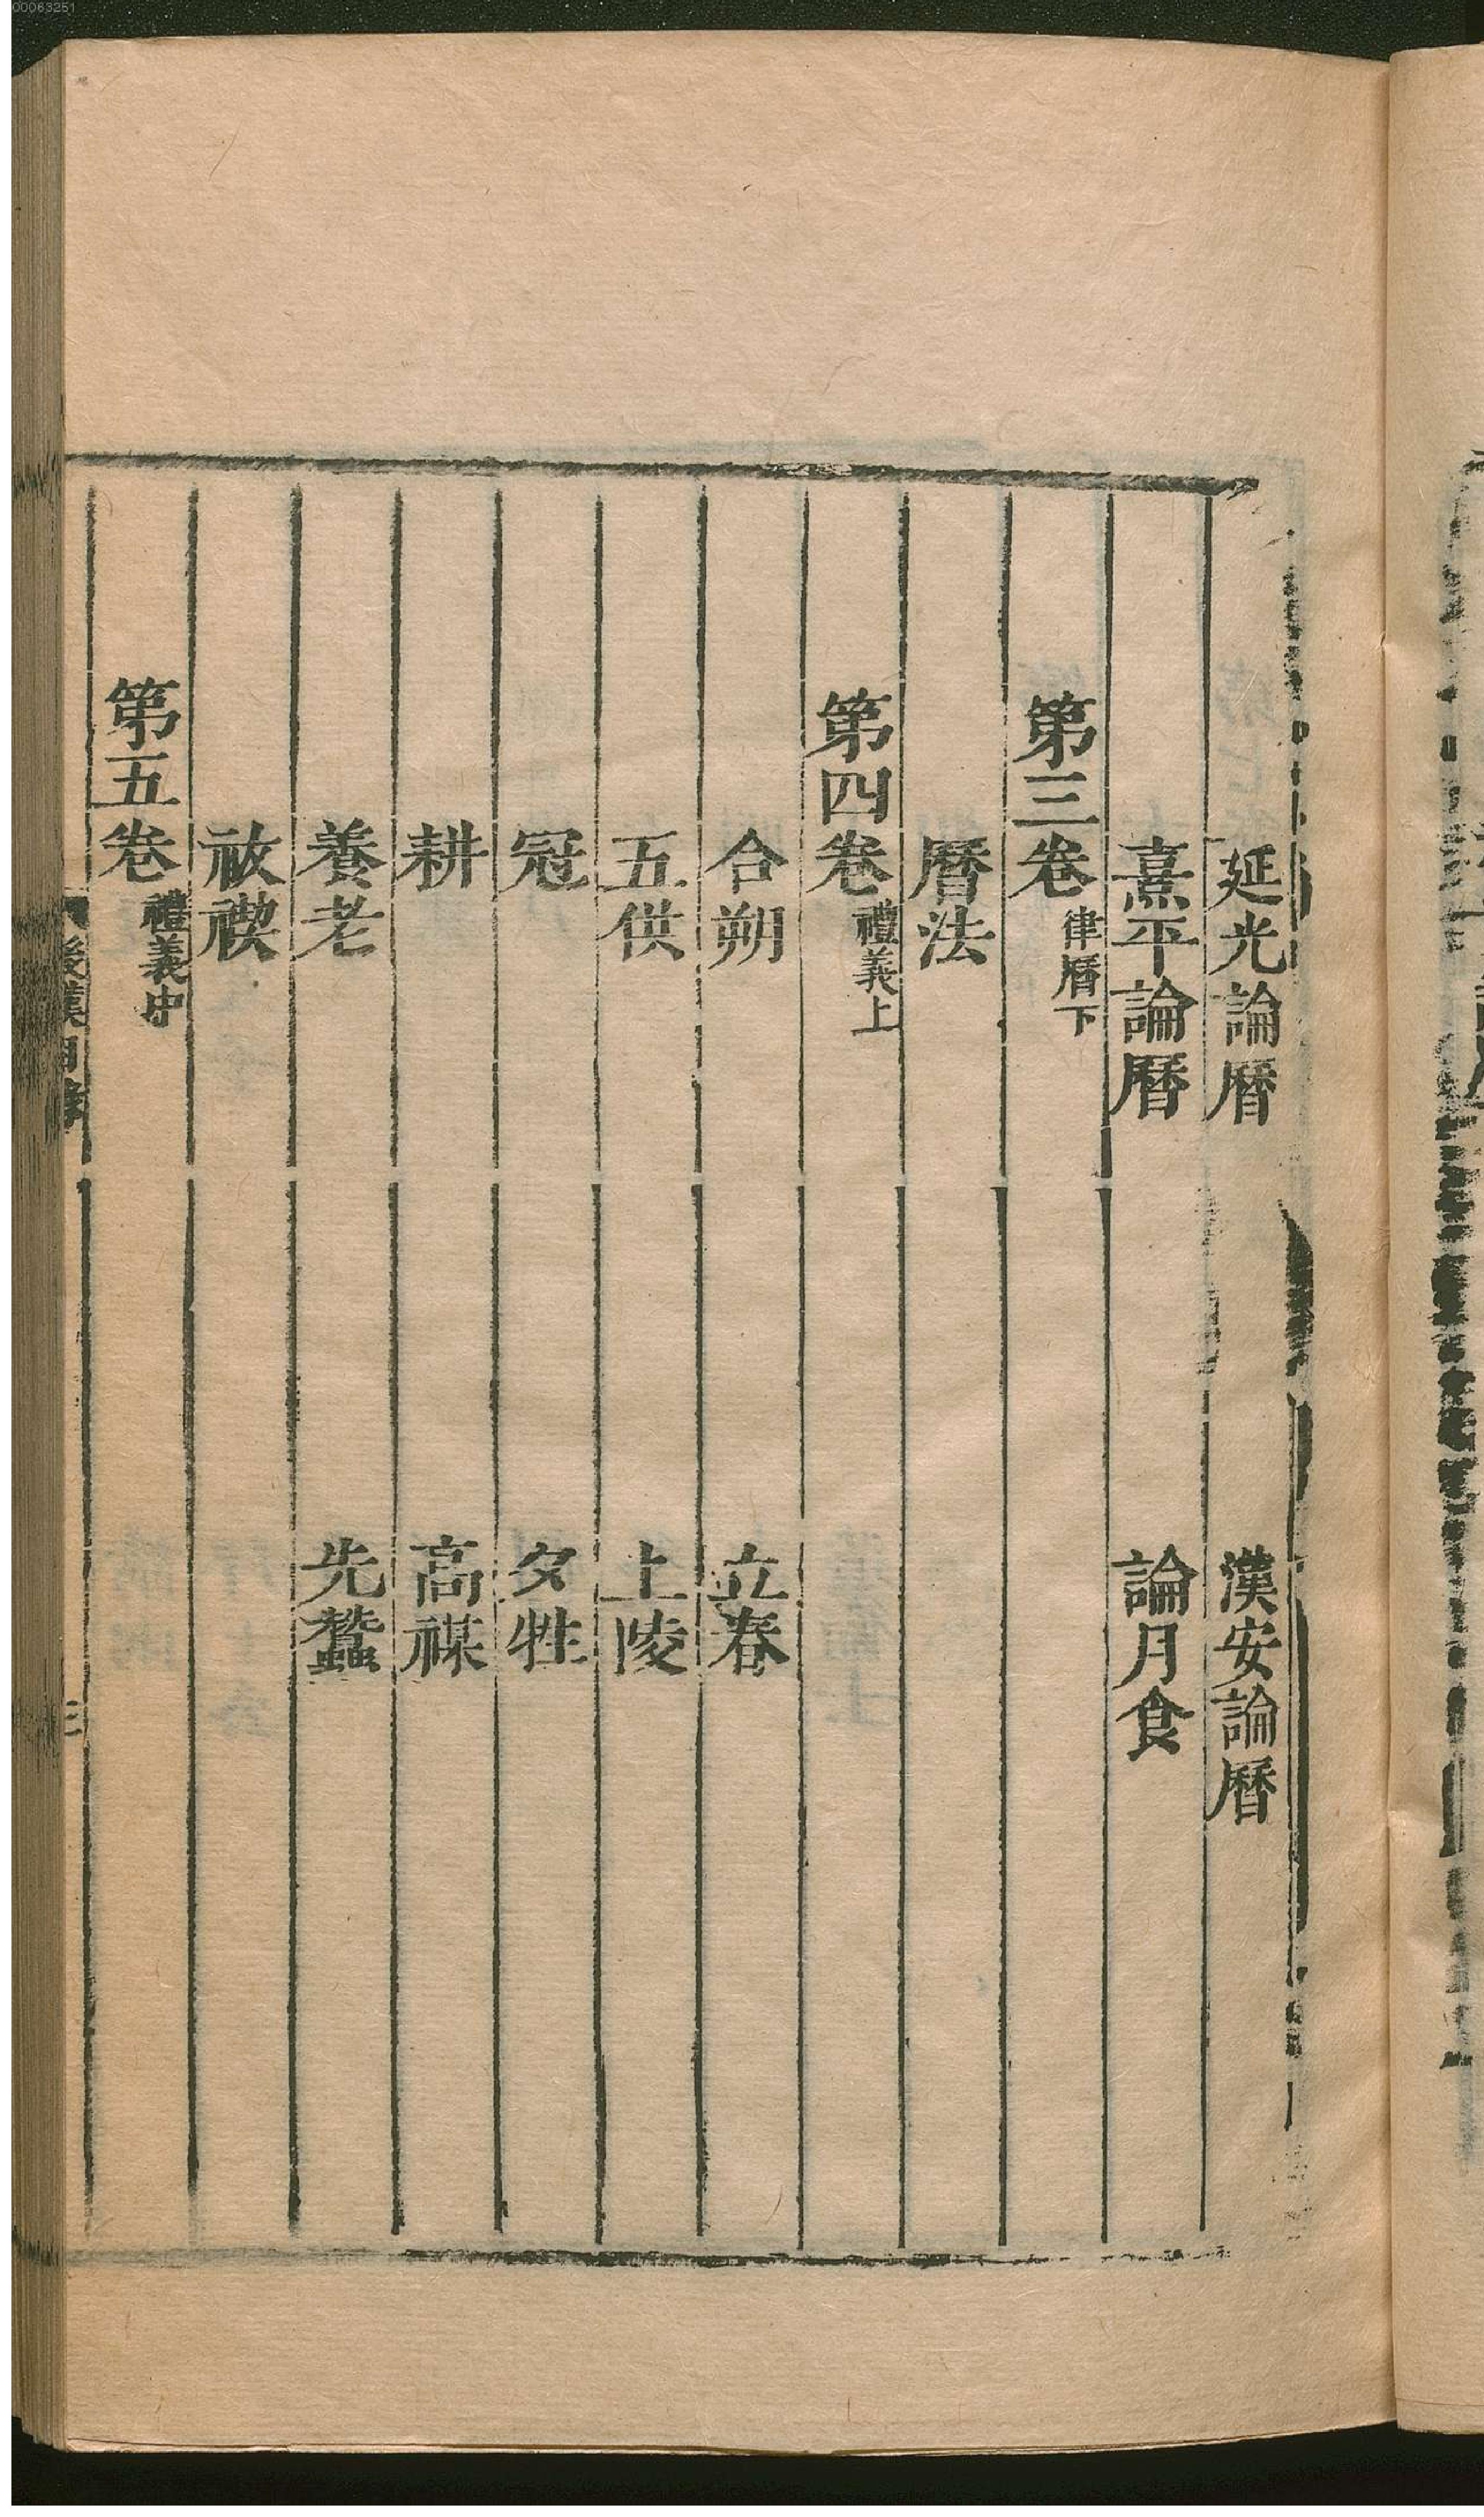 延光論曆　漢安論曆
熹平論曆　論月食
第三卷 律曆下
曆法
第四卷 禮義上
合朔　立春
五供　上陵
冠　夕牲
耕　高禖
養老　先蠶
祓禊
第五卷 禮義中
後漢目錄　三
00063251